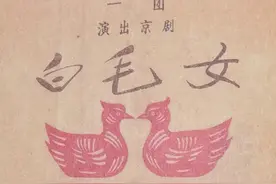 一团
演出京剧
白毛女